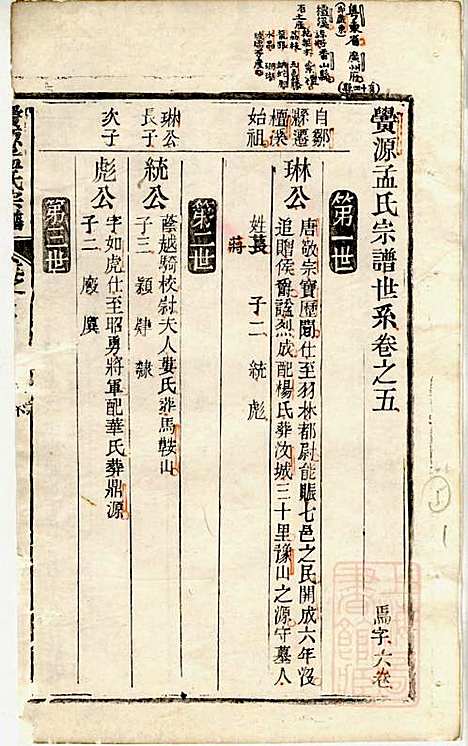 粵東省廣州府
石土產
豐源孟氏宗譜世系卷之五
馬字六卷
第一世
自鄒
縣遷
檀溪
始祖
琳公
唐敬宗寶曆間仕至羽林都尉能賑七邑之民開成六年沒
追贈侯爵諡烈成配楊氏葬汝城三十里豫山之源守墓人
姓蔣 子二 統 彪
第二世
琳公
長子
統公
蔭越騎校尉夫人婁氏葬馬鞍山
子三 潁 肆 隸
次子
彪公
字如虎仕至昭勇將軍配華氏葬鼎源
子二 廄 廙
第三世